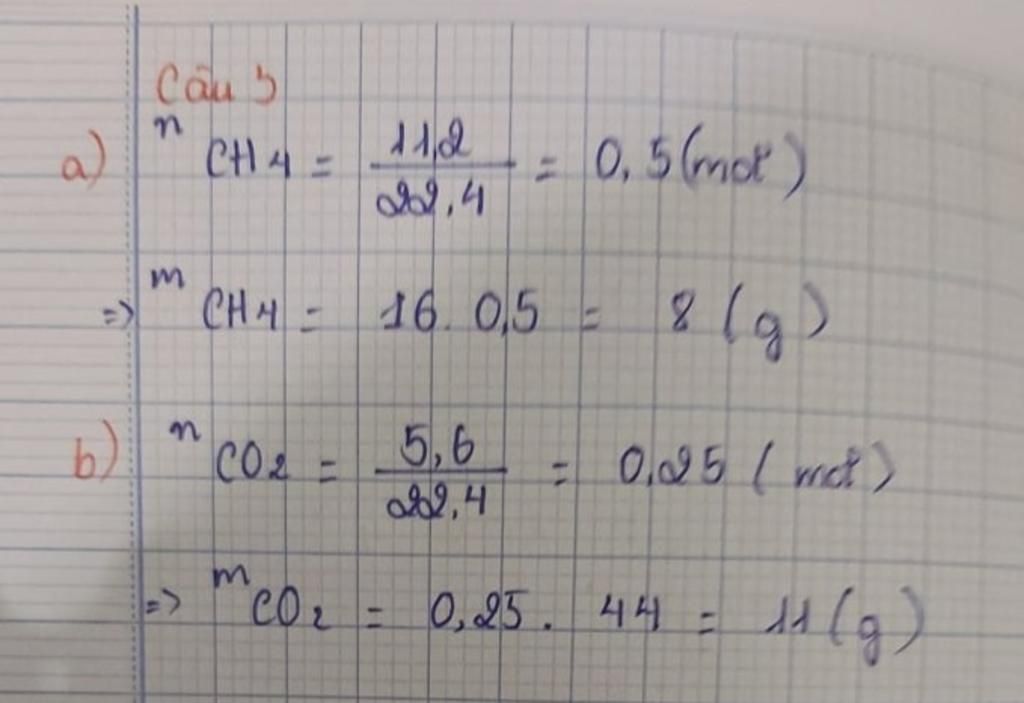 Câu 5
a) n CH4 = 11,2 / 22,4 = 0,5 (mol)
=> m CH4 = 16 . 0,5 = 8 (g)
b) n CO2 = 5,6 / 22,4 = 0,25 (mol)
=> m CO2 = 0,25 . 44 = 11 (g)